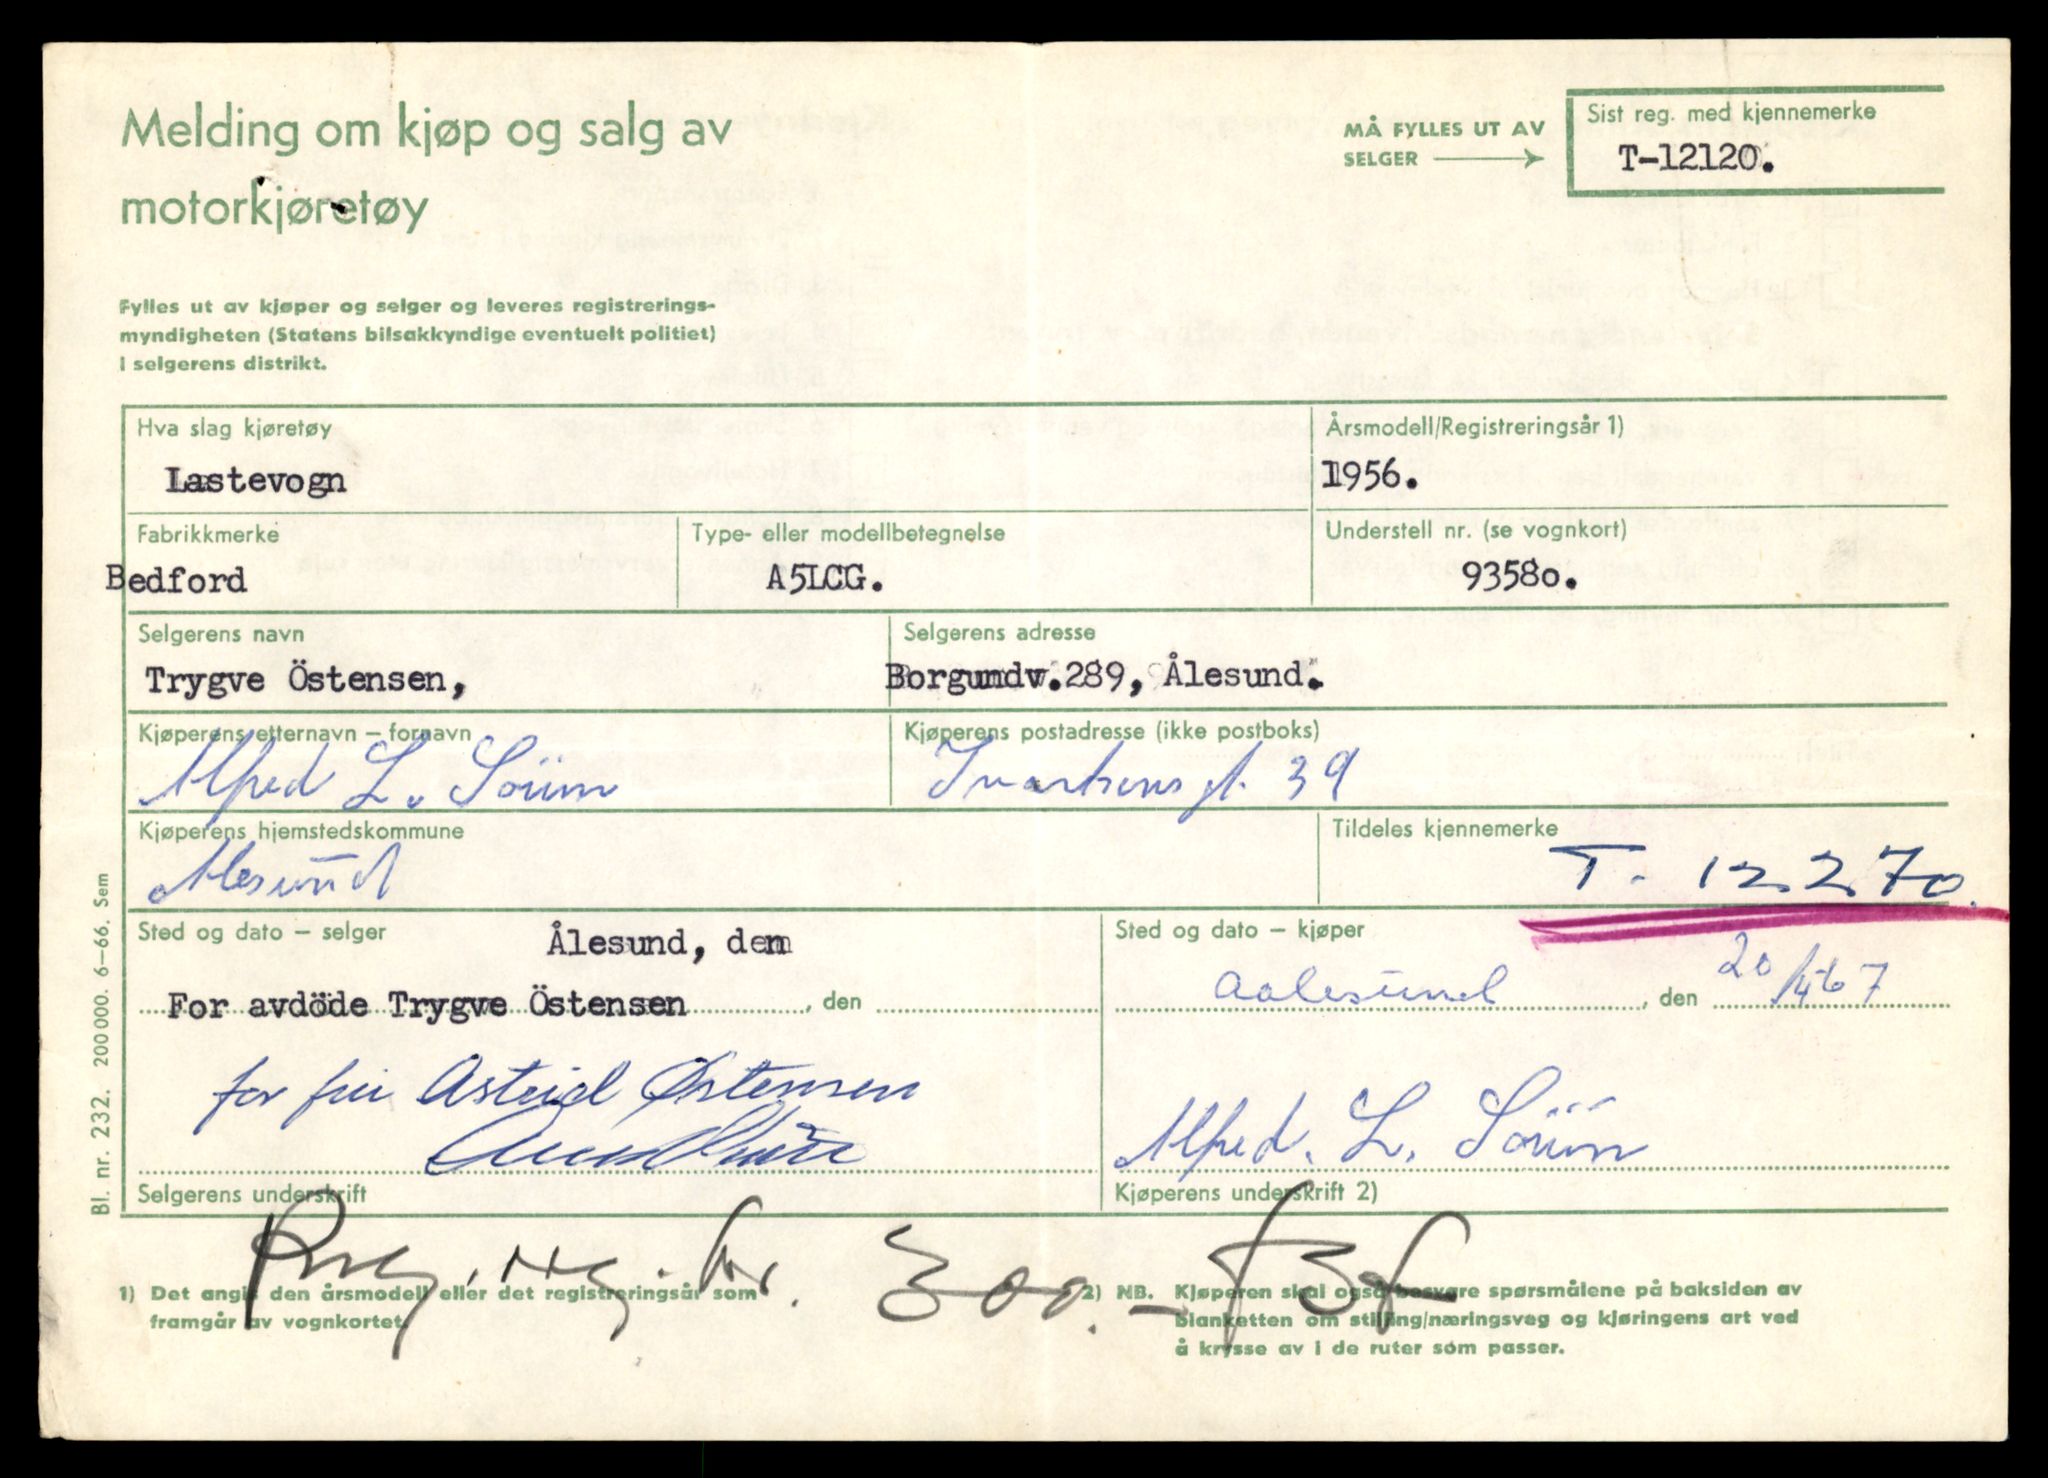 Melding om kjøp og salg av
motorkjøretøy
MÅ FYLLES UT AV
SELGER
Sist reg. med kjennemerke
T-12120.
Fylles ut av kjøper og selger og leveres registrerings-
myndigheten (Statens bilsakkyndige eventuelt politiet)
i selgerens distrikt.
Hva slag kjøretøy
Lastevogn
Årsmodell/Registreringsår 1)
1956.
Fabrikkmerke
Bedford
Type- eller modellbetegnelse
A5LCG.
Understell nr. (se vognkort)
9358o.
Selgerens navn
Trygve Östensen,
Selgerens adresse
Borgundv.289, Ålesund.
Kjøperens etternavn – fornavn
Alfred L. Sörum
Kjøperens postadresse (ikke postboks)
39
Kjøperens hjemstedskommune
Alesund
Tildeles kjennemerke
T. 12270.
Sted og dato – selger
Ålesund, den
For avdöde Trygve Östensen, den
for fru Astrid Østensen
Selgerens underskrift
Sted og dato – kjøper
Aalesund, den 20/4-67
Alfred. L. Sörum
Kjøperens underskrift 2)
300.-
1) Det angis den årsmodell eller det registreringsår som
framgår av vognkortet.
2) NB. Kjøperen skal også besvare spørsmålene på baksiden av
blanketten om stilling/næringsveg og kjøringens art ved
å krysse av i de ruter som passer.
Bl. nr. 232. 200 000. 6–66. Sem